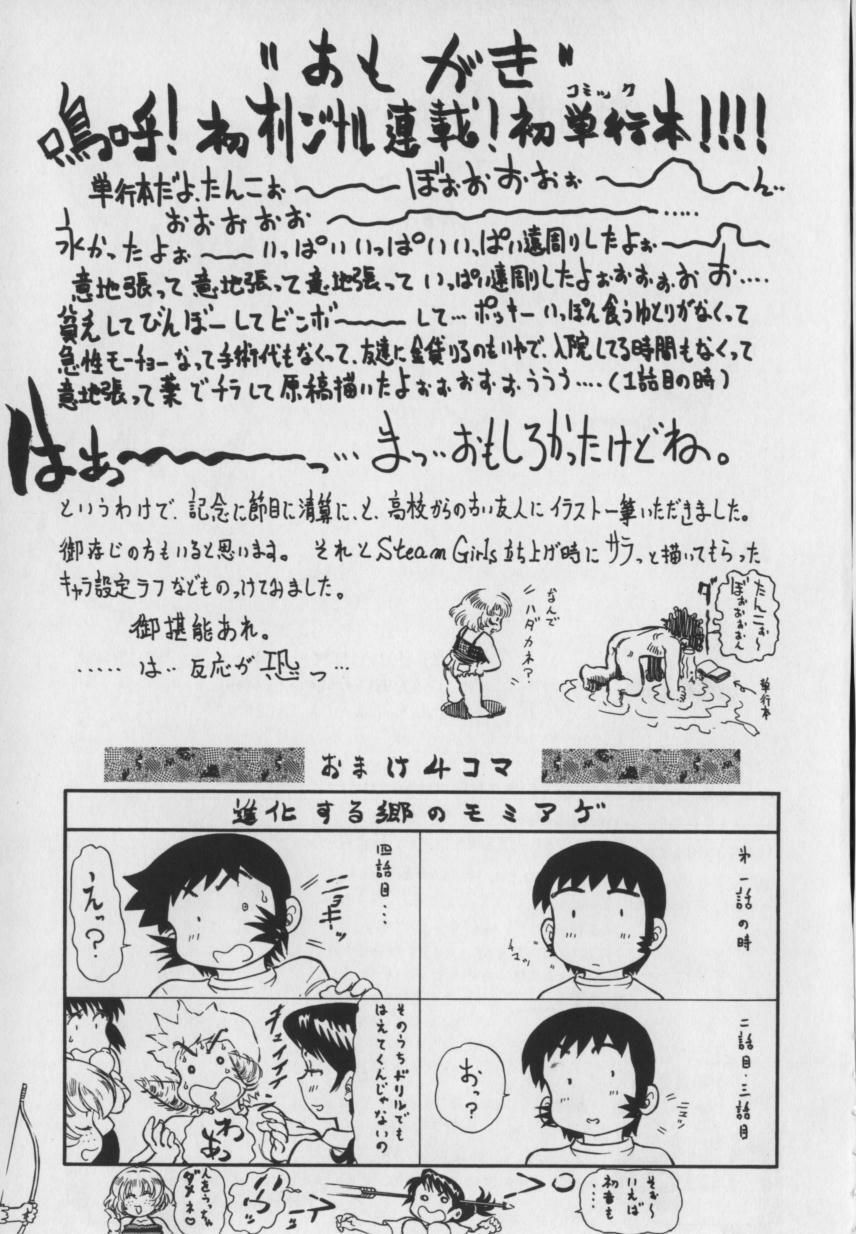 "あもがき"
嗚呼!初オリジナル連載!初単行本!!!!
コミック
単行本だよ、たんこぉ〜ぼぉぉおおぉぉ〜ん…
おぉぉぉぉお〜.....
永かったよぉ〜いっぱいいっぱいいっぱい遠周りしたよぉ〜
意地張って意地張って意地張っていっぱい遠周りしたよぉぉぉぉぉお....
貧乏してびんぼーしてビンボ〜して…ポッキーいっぽん食うゆとりがなくって
急性モーチョーなって手術代もなくって、友達に金貸りるのもいやで、入院してる時間もなくって
意地張って薬でチラして原稿描いたよぉぉぉぉぉううう....(1話目の時)
はぁっ〜っ…まっ…おもしろかったけどね。
というわけで、記念に節目に清算に、と、高校からの古い友人にイラスト一筆いただきました。
御存じの方もいると思います。それとSteam Girls立ち上げ時にサラっと描いてもらった
キャラ設定ラフなどものっけてみました。
御堪能あれ。
......は…反応が恐っ…
なんで
ハダカネ?
たんこぉ〜
ぼぉぉぉぉん
ダー
単行本
おまけ4コマ
進化する郷のモミアゲ
第一話の時
チマッ
二話目・三話目
おっ?
ニョッ
四話目…
ニョキッ
えっ?
そのうちドリルでも
はえてくんじゃないの
キュイイイイ
わぁっ
そぉ〜
いえば
初音も
…
人をうっちゃ
ダメネ♡